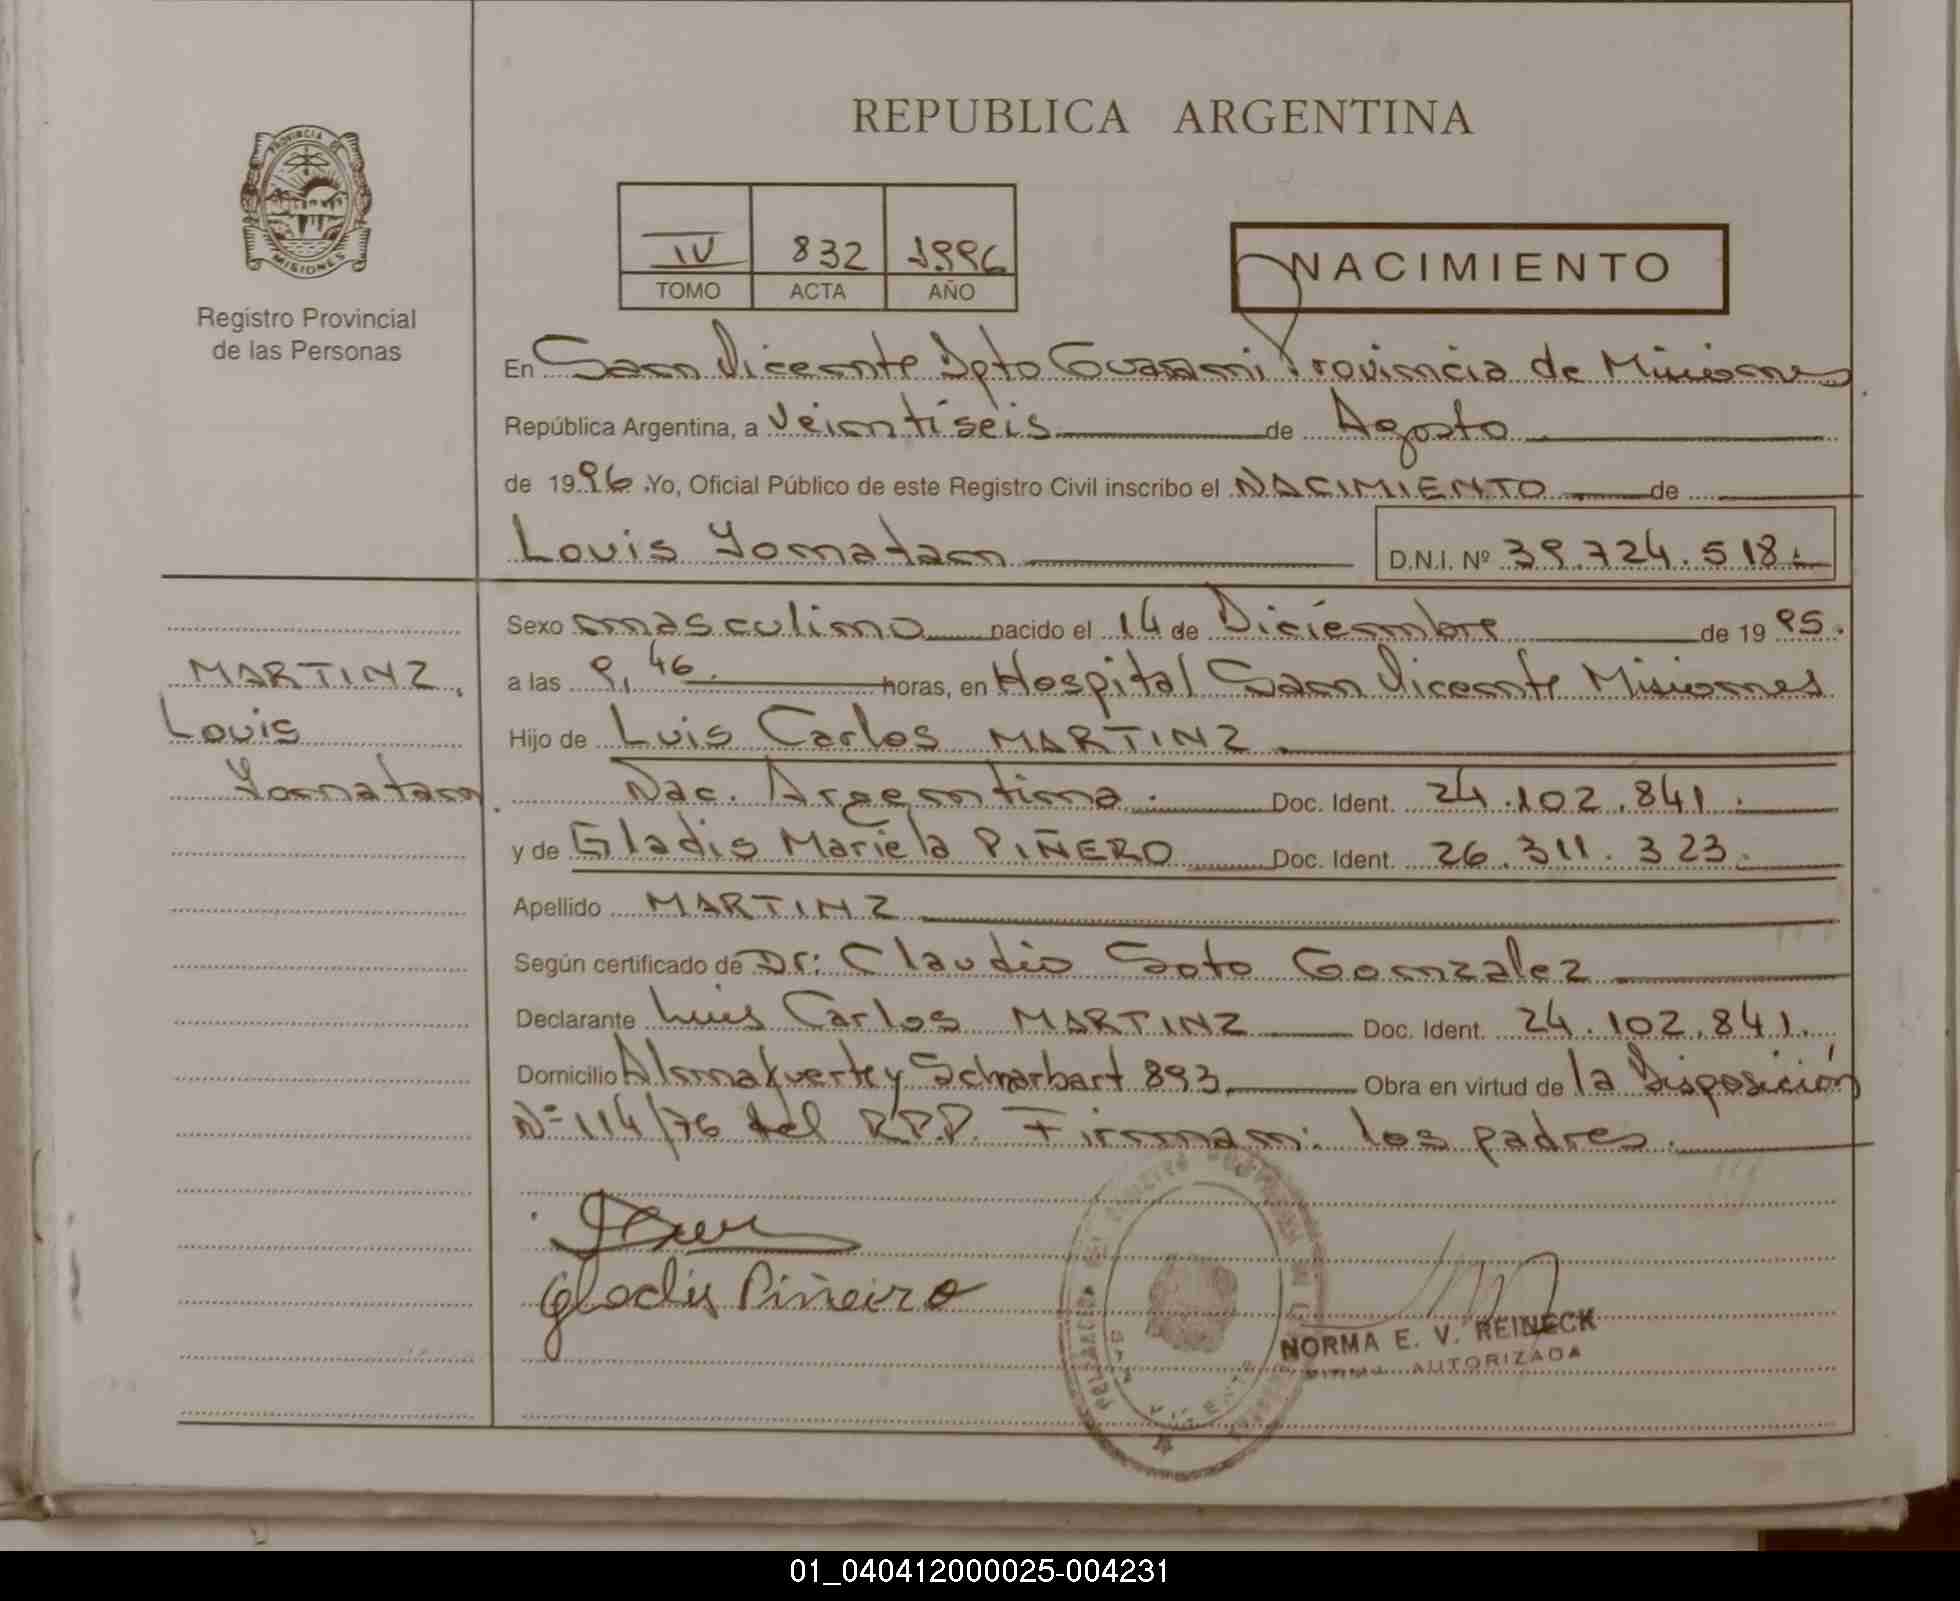 REPUBLICA ARGENTINA
PROVINCIA DE
MISIONES
Registro Provincial
de las Personas
IV 832 1996
TOMO ACTA AÑO
NACIMIENTO
En San Vicente Dpto Guarani Provincia de Misiones
República Argentina, a Veintiseis de Agosto
de 1996 Yo, Oficial Público de este Registro Civil inscribo el NACIMIENTO de
Louis Yonatan D.N.I. Nº 39.724.518.
Sexo masculino nacido el 14 de Diciembre de 1995.
a las 9,46 horas, en Hospital San Vicente Misiones
Hijo de Luis Carlos MARTINZ
Nac. Argentina. Doc. Ident. 24.102.841.
y de Gladis Mariela PIÑERO Doc. Ident. 26.311.323.
Apellido MARTINZ
Según certificado de Dr: Claudio Soto Gonzalez
Declarante Luis Carlos MARTINZ Doc. Ident. 24.102.841.
Domicilio 893 Obra en virtud de la Disposición
Nº 114/76 del R.P.P. Firman: los padres.
MARTINZ,
Louis
Yonatan.
Gladis Piñeiro
NORMA E. V. REINECK
AUTORIZADA
01_040412000025-004231